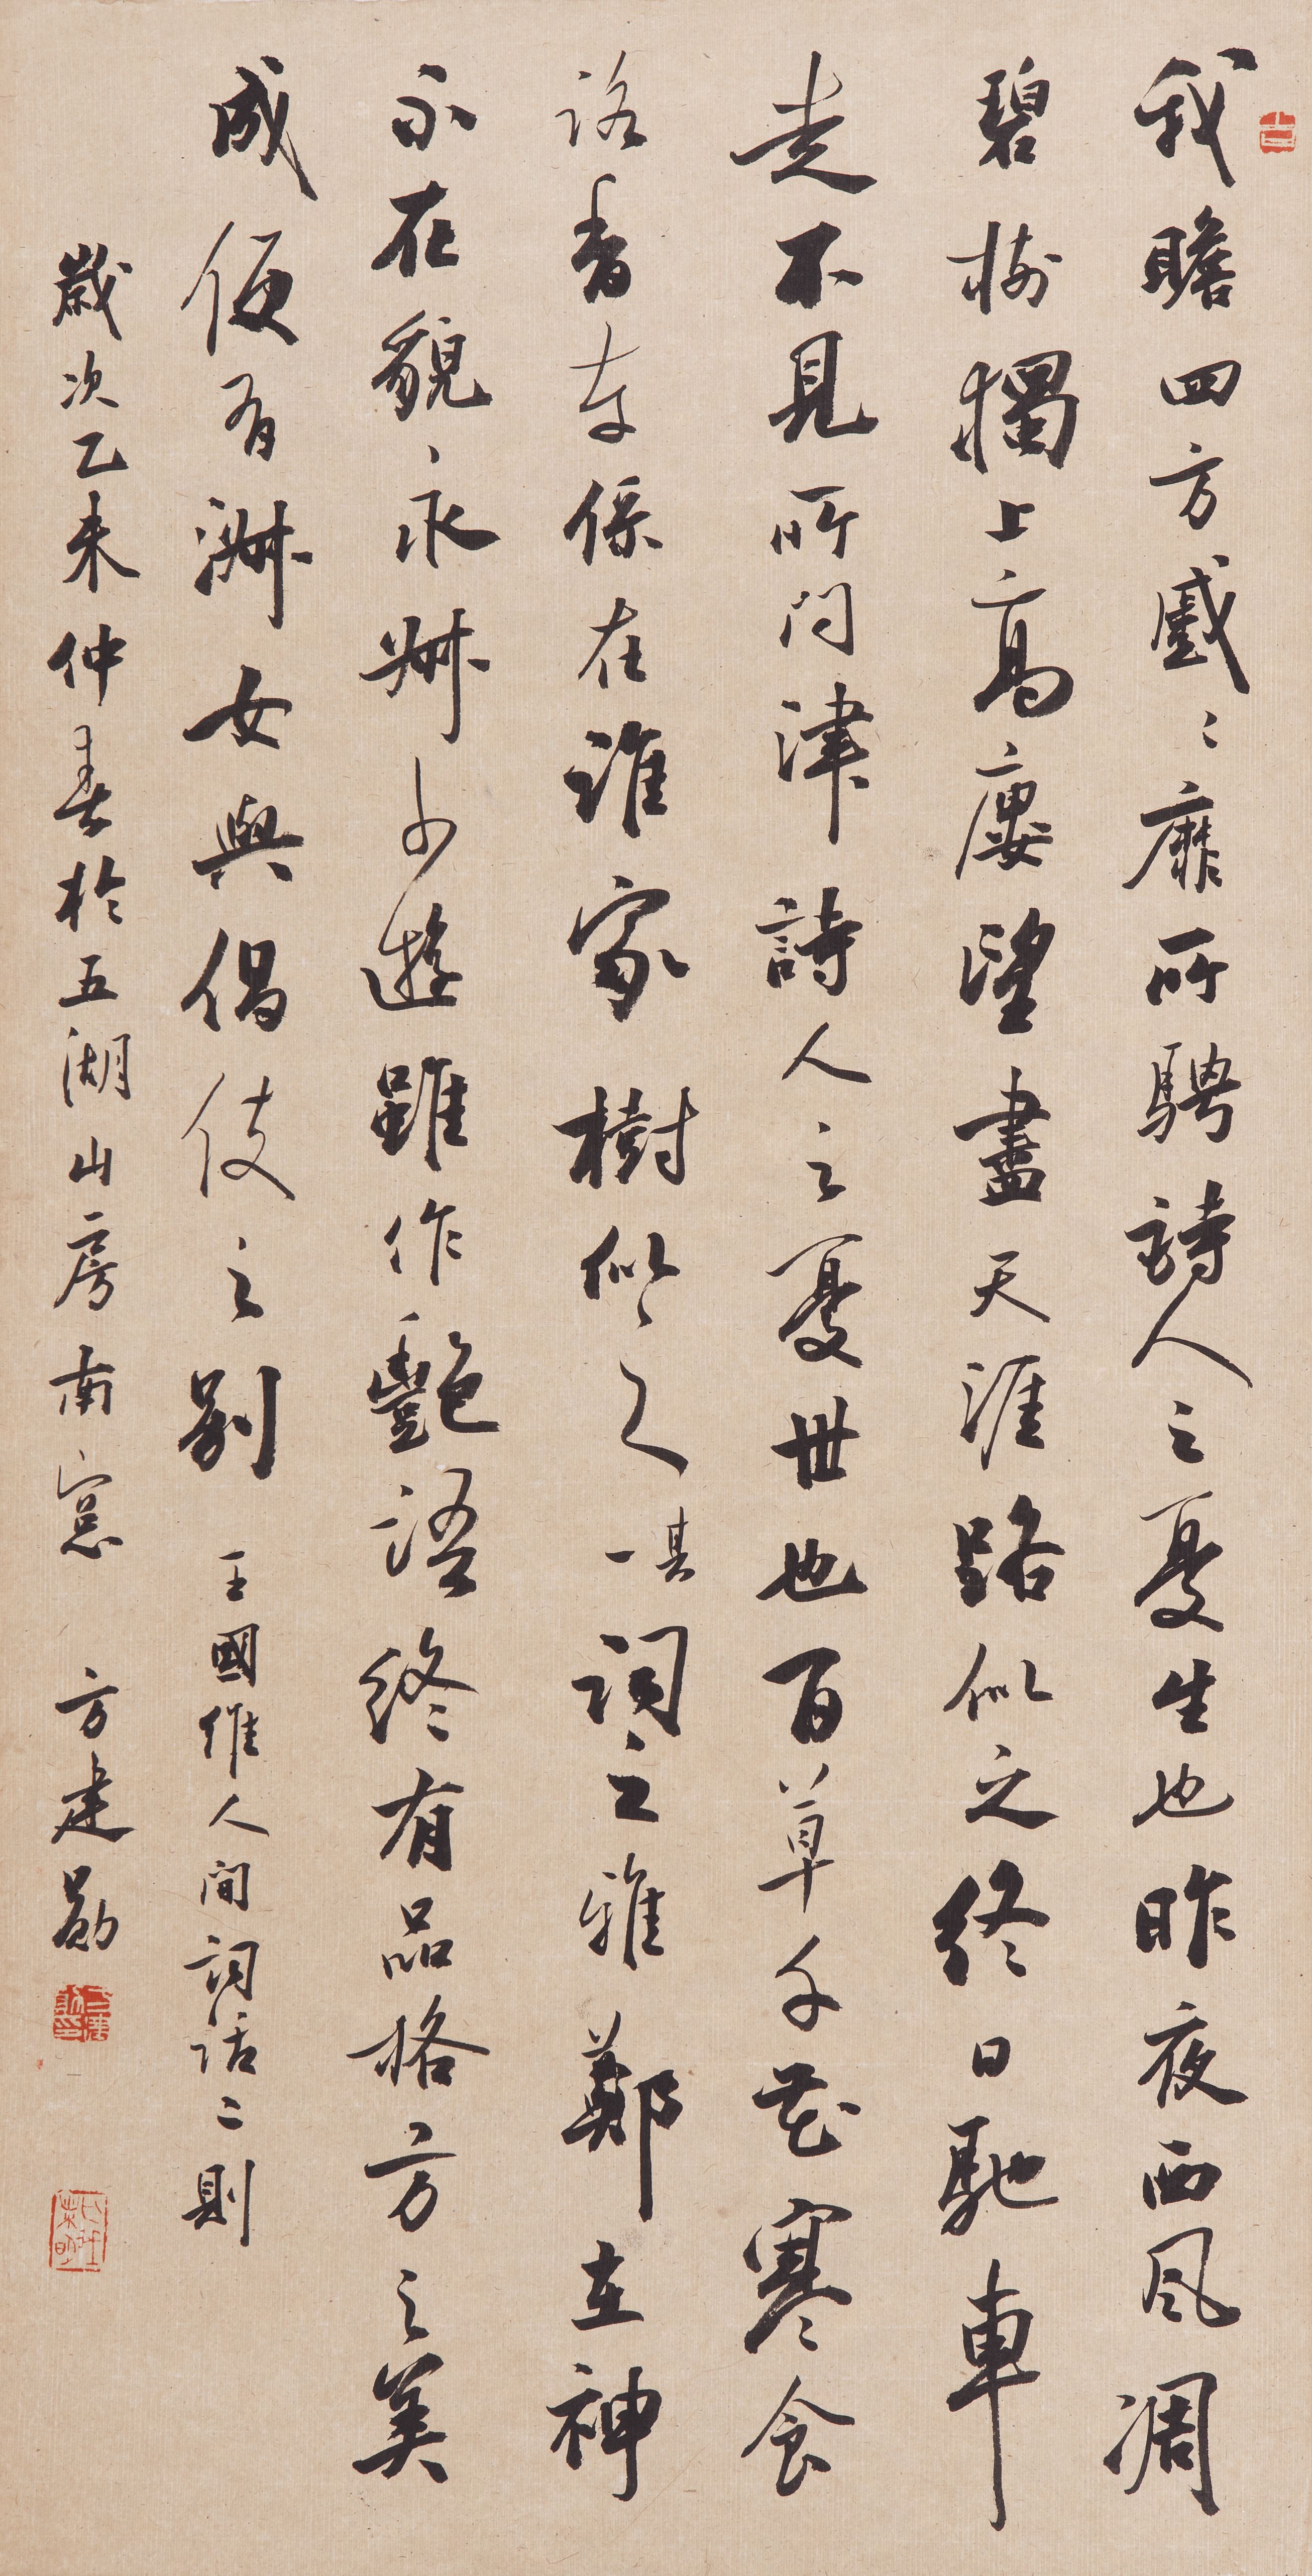 我瞻四方蹙〻靡所騁詩人之憂生也昨夜西風凋
碧樹獨上高廔望盡天涯路似之終日馳車
走不見所問津詩人之憂世也百草千花寒食
路香車係在誰家樹似之其一詞之雅鄭在神
不在貌永叔少遊雖作豔語終有品格方之美
成便有淑女與倡伎之別 王國維人間詞話二則
歲次乙未仲春於五湖山房南窓 方建勛